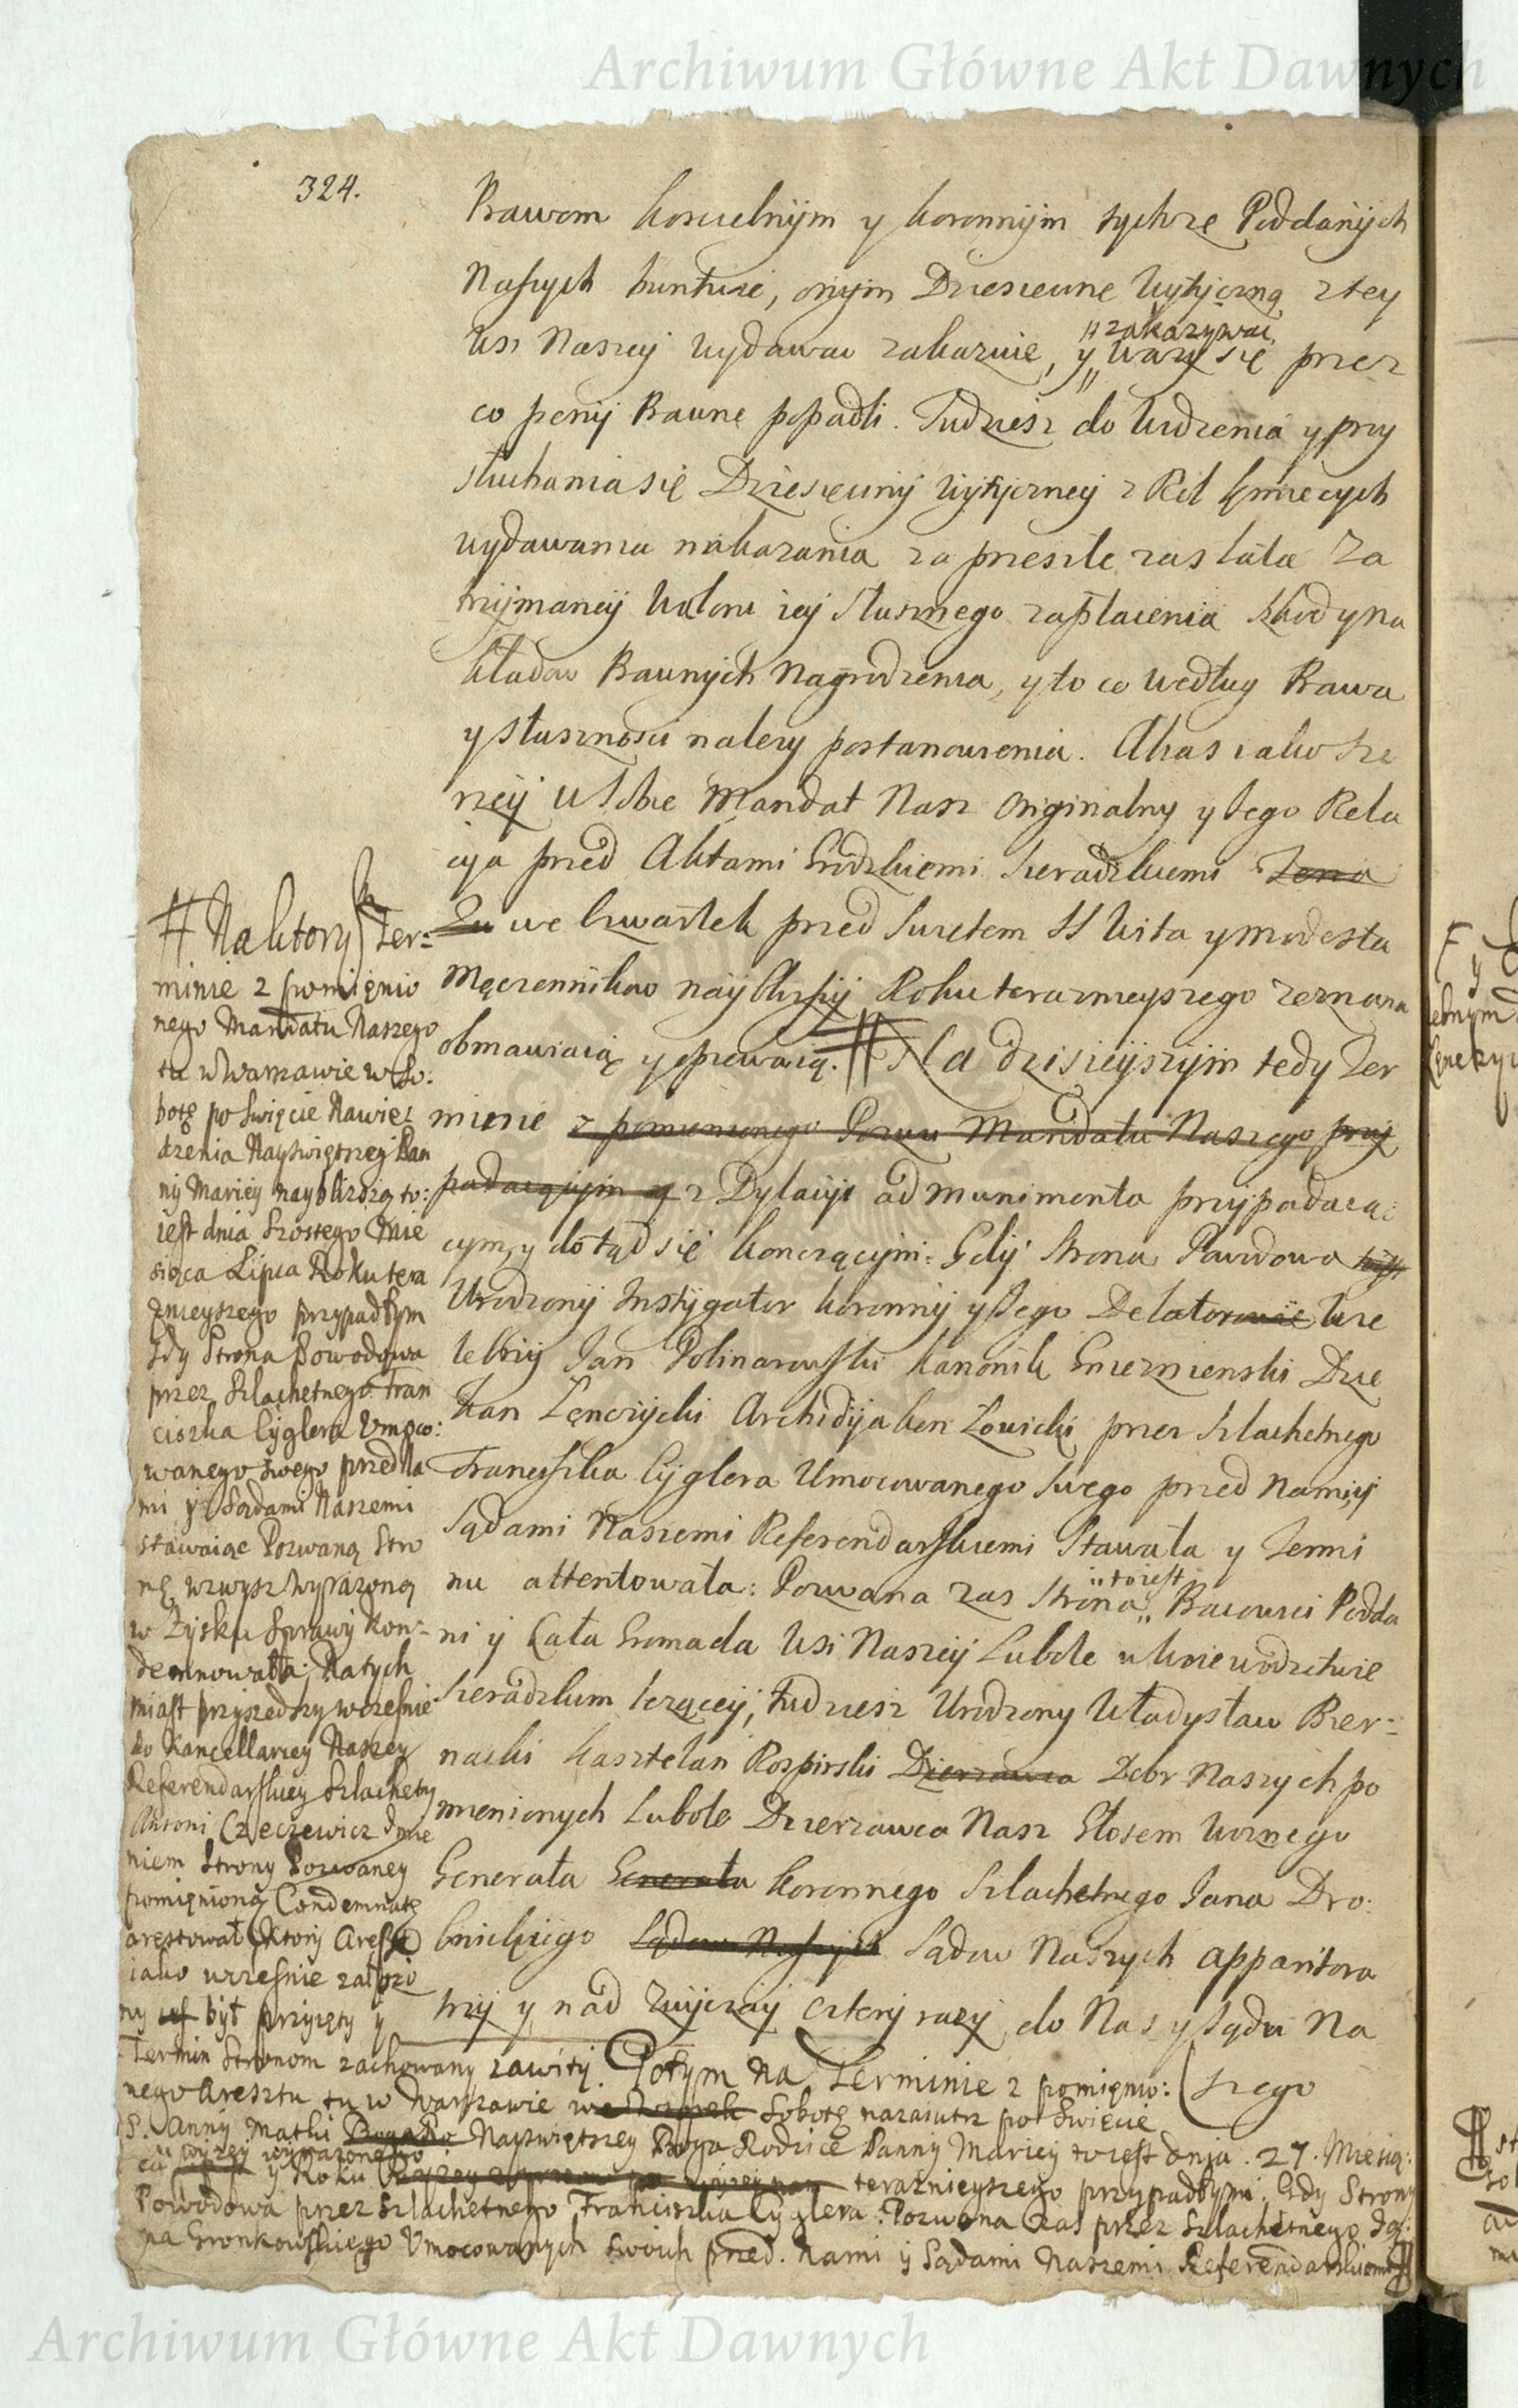 Archiwum Główne Akt Dawnych
324.
Prawom koscielnym y koronnym tychze Poddanych
Naszych buntuie, onym Dziesięcinę wytyczną z tey
wsi Naszey wydawac zakazuie, y "zakazywac" waży się przez
co peny Prawne popadli. Tudziesz do widzenia y przy
słuchania się Dziesięciny wytyczney z Ról kmiecych
wydawania nakazania za przeszłe zas lata za
trzymaney waloru iey słusznego zapłacenia szkod y na
kładow Prawnych nagrodzenia, y to co według Prawa
y słusznosci nalezy postanowienia. Akas iako sze
rzey w sobie Mandat Nasz Originalny y Jego Rela
cya przed Aktami Grodzkiemi Sieradzkiemi
we Czwartek przed Swietem SS Wita y Modesta
Męczennikow nayblizszy Roku teraznieyszego zeznana
obmawiaią y opiewaią. # Na dzisieyszym tedy Ter
minie z pomienionego Pozwu Mandatu Naszego przy
padaiącym y z Dylacyi ad munimenta przypadaią:
cym, y do tąd się konczącym: Gdy Strona Powodowa
Urodzony Instygator koronny y Jego Delatorowie Wie
lebny Jan Polinarowski kanonik Gnieznienski Dzie
kan Łęczycki Archidyakon Łowicki przez Szlachetnego
Franciszka Cyglera Umocowanego swego przed Nami y
Sądami Naszemi Referendarskiemi Stawała y Termi
nu attentowała: Pozwana zas Strona "to iest" Pracowici Podda
ni y Cała Gromada Wsi Naszey Lubole w Woiewodztwie
Sieradzkim leżącey, tudziesz Urodzony Władysław Bier=
nacki Kasztelan Rospirski Dzierzawca Dobr Naszych po
mienionych Lubole Dzierzawca Nasz Głosem Woznego
Generała Generała koronnego Szlachetnego Jana Dro:
bnickiego Sądow Naszych Sądow Naszych apparitora
trzy y nad zwyczay cztery razy do Nas y Sądu Na
szego
# Na ktory Ter=
minie z pomięnio
nego Mandatu Naszego
tu w Warszawie w So:
botę po Swięcie Nawie:
dzenia Nayświętszey Pan
ny Mariey nayblizszą to:
iest dnia szostego Mie
siąca Lipca Roku tera
znieyszego przypadłym
Gdy Strona Powodowa
przez Szlachetnego Fran
ciszka Cyglera Umoco:
wanego swego przed Na
mi y Sądami Naszemi
stawaiąc Pozwaną Stro
nę wzwysz wyrażoną
w Zysku Sprawy kon=
demnowała; Natych
miast przyszedszy wcześnie
do Kancellariey Naszey
Referendarskiey Szlachetny
Antoni Czeczewicz Imie
niem Strony Pozwaney
pomięnioną Condemnatę
aresztował Ktory Areszt
iako wcześnie założo
ny był przyięty y
Termin Stronom zachowany zawity. Potym na Terminie z pomięnio:
nego Aresztu tu w Warszawie we Wtorek Sobotę nazaiutrz po Swięcie
S. Anny Matki Nayswiętszey Boga Rodzice Panny Mariey to iest dnia. 27. Miesią:
ca wyzey wyrażonego y Roku teraznieyszego przypadłym: Gdy Strony
Powodowa przez Szlachetnego Franciszka Cyglera: Pozwana zas przez Szlachetnego Ig:
na Gronkowskiego Umocowanych swoich przed Nami y Sądami Naszemi Referendarskiemi
Archiwum Główne Akt Dawnych